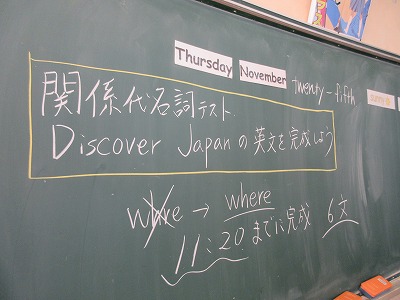 Thursday November twenty-fifth
関係代名詞テスト
Discover Japanの英文を完成しよう
whre → where
11:20までに完成 6文